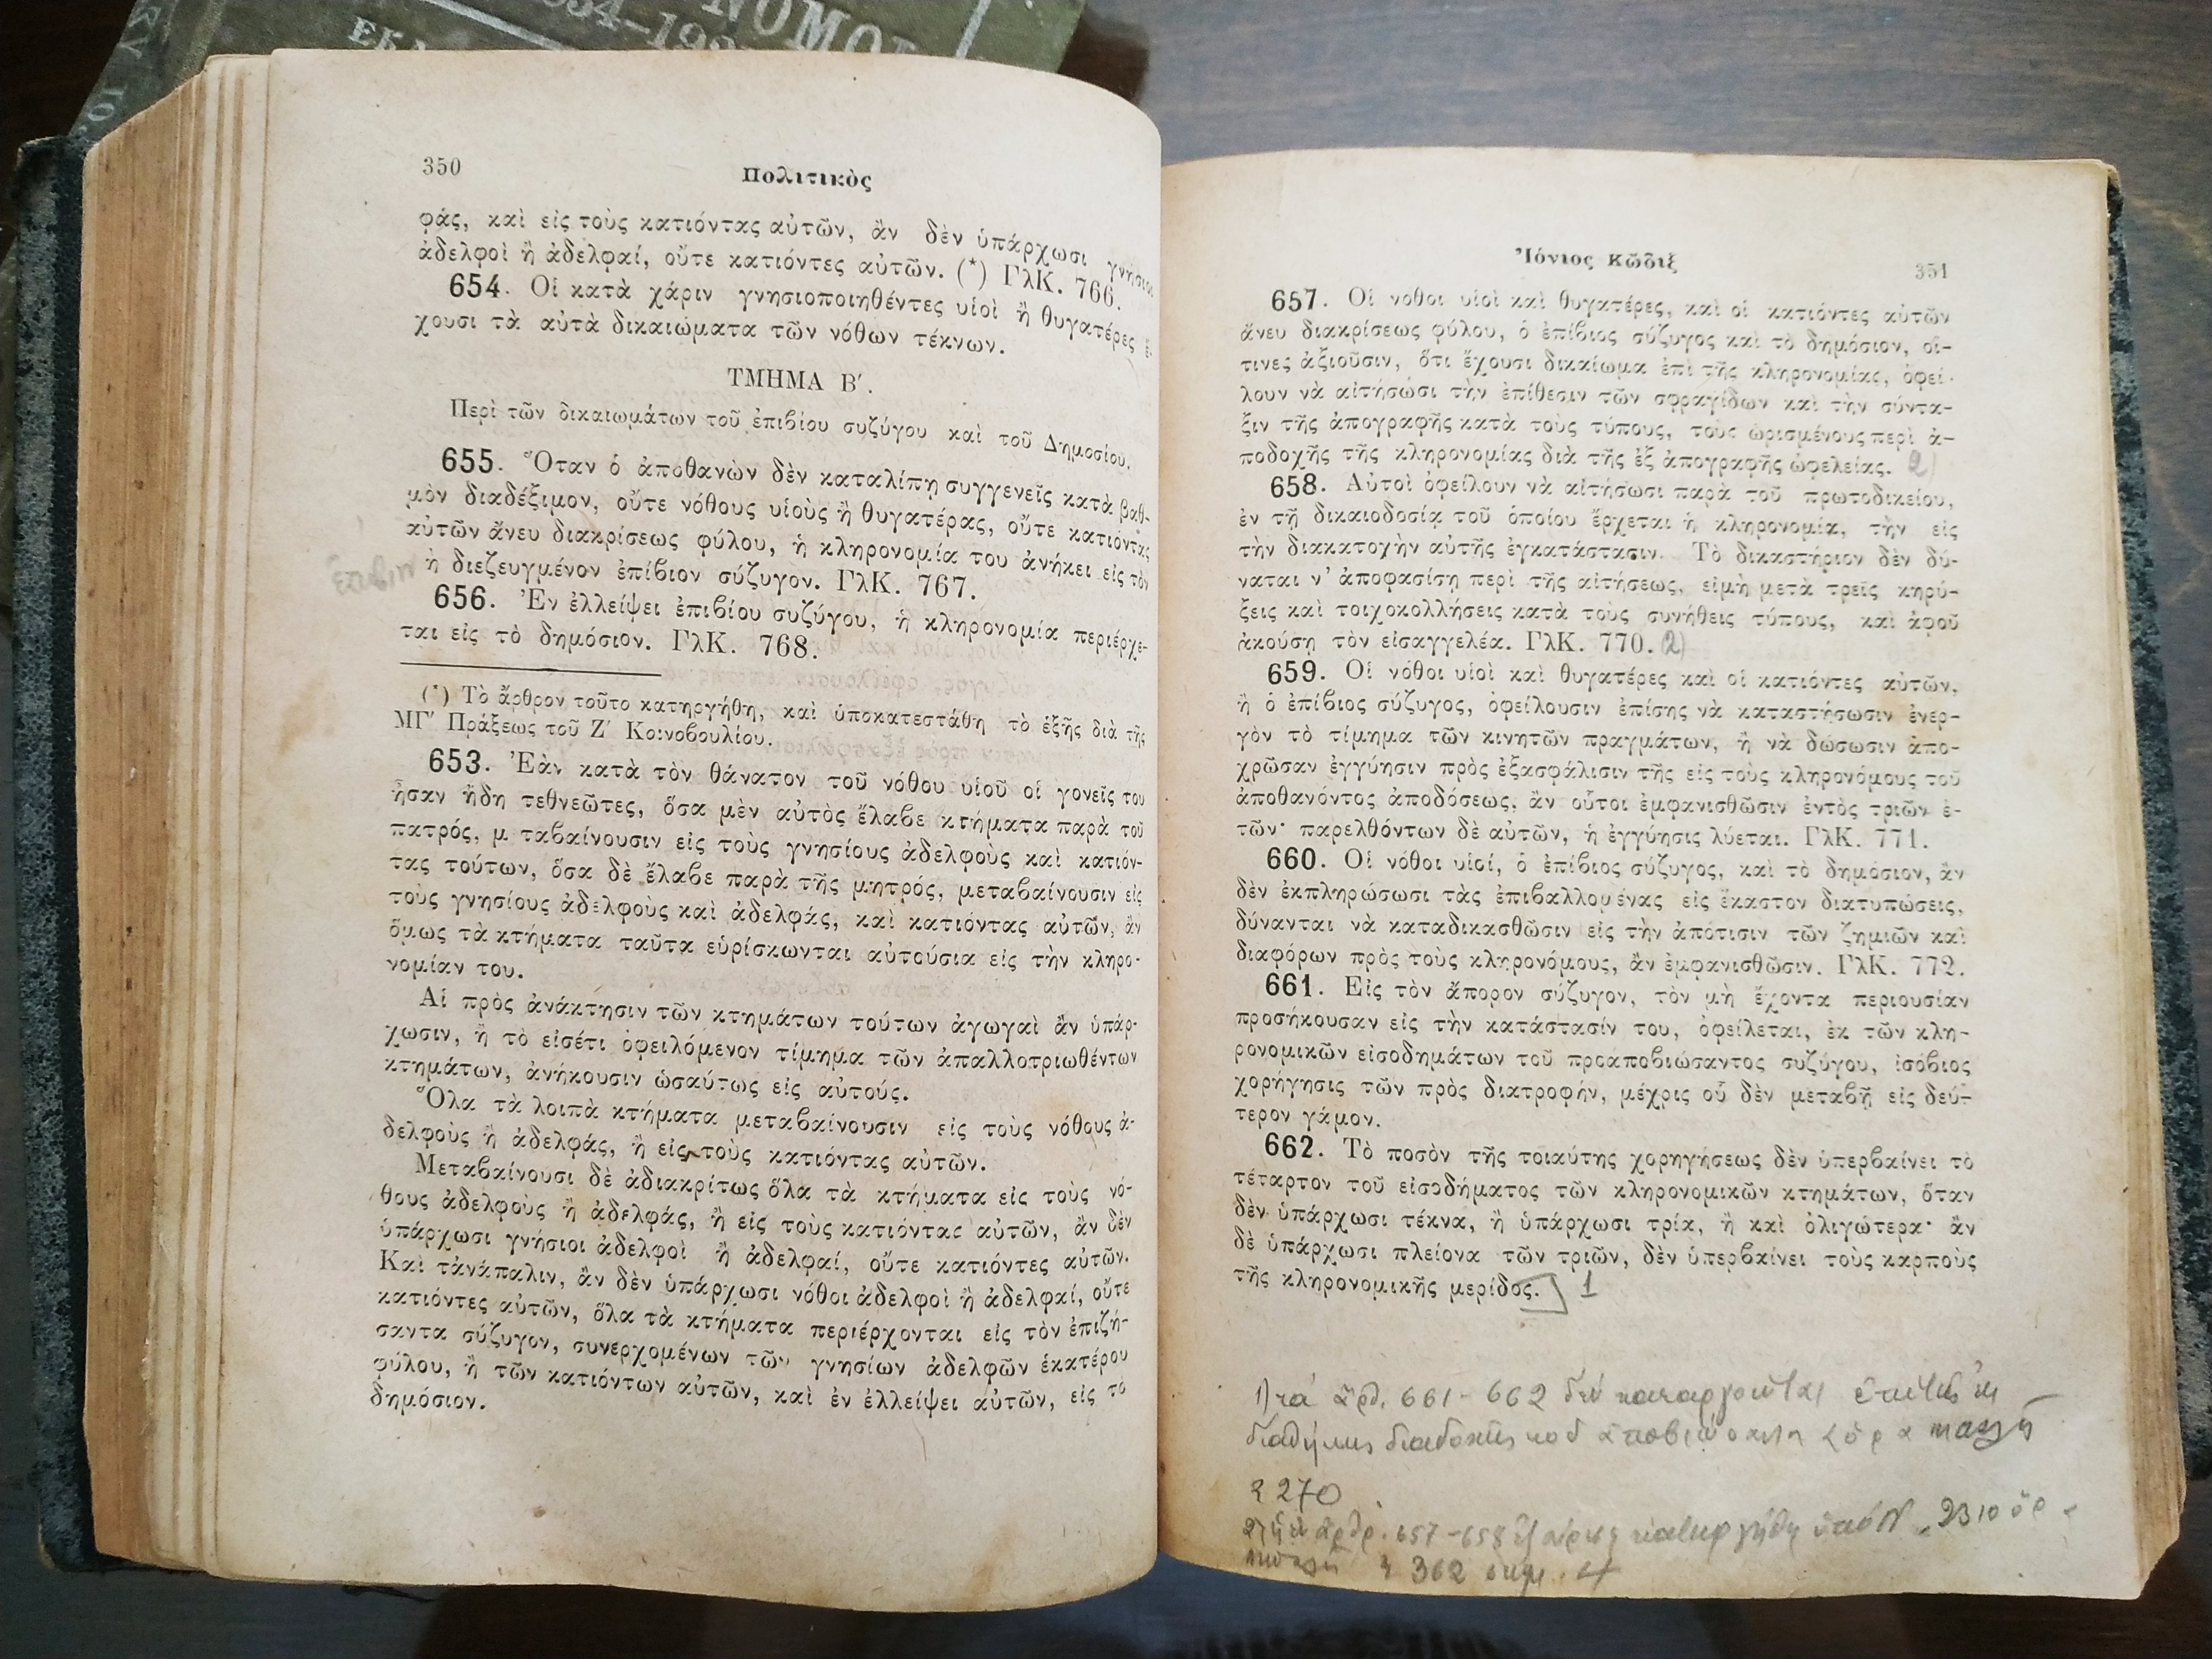 ΝΟΜΟΙ
350
Πολιτικὸς
φάς, καὶ εἰς τοὺς κατιόντας αὐτῶν, ἂν δὲν ὑπάρχωσι γνήσιοι
ἀδελφοὶ ἢ ἀδελφαί, οὔτε κατιόντες αὐτῶν. (*) ΓλΚ. 766.
654. Οἱ κατὰ χάριν γνησιοποιηθέντες υἱοὶ ἢ θυγατέρες ἔ-
χουσι τὰ αὐτὰ δικαιώματα τῶν νόθων τέκνων.
ΤΜΗΜΑ Β΄.
Περὶ τῶν δικαιωμάτων τοῦ ἐπιβίου συζύγου καὶ τοῦ Δημοσίου.
655. Ὅταν ὁ ἀποθανὼν δὲν καταλίπῃ συγγενεῖς κατὰ βαθ-
μὸν διαδέξιμον, οὔτε νόθους υἱοὺς ἢ θυγατέρας, οὔτε κατιόντας
αὐτῶν ἄνευ διακρίσεως φύλου, ἡ κληρονομία του ἀνήκει εἰς τὸν
ἢ διεζευγμένον ἐπίβιον σύζυγον. ΓλΚ. 767.
656. Ἐν ἐλλείψει ἐπιβίου συζύγου, ἡ κληρονομία περιέρχε-
ται εἰς τὸ δημόσιον. ΓλΚ. 768.
(*) Τὸ ἄρθρον τοῦτο κατηργήθη, καὶ ὑποκατεστάθη τὸ ἑξῆς διὰ τῆς
ΜΓ΄ Πράξεως τοῦ Ζ΄ Κοινοβουλίου.
653. Ἐὰν κατὰ τὸν θάνατον τοῦ νόθου υἱοῦ οἱ γονεῖς του
ἦσαν ἤδη τεθνεῶτες, ὅσα μὲν αὐτὸς ἔλαβε κτήματα παρὰ τοῦ
πατρός, μ ταβαίνουσιν εἰς τοὺς γνησίους ἀδελφοὺς καὶ κατιόν-
τας τούτων, ὅσα δὲ ἔλαβε παρὰ τῆς μητρός, μεταβαίνουσιν εἰς
τοὺς γνησίους ἀδελφοὺς καὶ ἀδελφάς, καὶ κατιόντας αὐτῶν, ἂν
ὅμως τὰ κτήματα ταῦτα εὑρίσκωνται αὐτούσια εἰς τὴν κληρο-
νομίαν του.
Αἱ πρὸς ἀνάκτησιν τῶν κτημάτων τούτων ἀγωγαὶ ἂν ὑπάρ-
χωσιν, ἢ τὸ εἰσέτι ὀφειλόμενον τίμημα τῶν ἀπαλλοτριωθέντων
κτημάτων, ἀνήκουσιν ὡσαύτως εἰς αὐτούς.
Ὅλα τὰ λοιπὰ κτήματα μεταβαίνουσιν εἰς τοὺς νόθους ἀ-
δελφοὺς ἢ ἀδελφάς, ἢ εἰς τοὺς κατιόντας αὐτῶν.
Μεταβαίνουσι δὲ ἀδιακρίτως ὅλα τὰ κτήματα εἰς τοὺς νό-
θους ἀδελφοὺς ἢ ἀδελφάς, ἢ εἰς τοὺς κατιόντας αὐτῶν, ἂν δὲν
ὑπάρχωσι γνήσιοι ἀδελφοὶ ἢ ἀδελφαί, οὔτε κατιόντες αὐτῶν.
Καὶ τἀνάπαλιν, ἂν δὲν ὑπάρχωσι νόθοι ἀδελφοὶ ἢ ἀδελφαί, οὔτε
κατιόντες αὐτῶν, ὅλα τὰ κτήματα περιέρχονται εἰς τὸν ἐπιζή-
σαντα σύζυγον, συνερχομένων τῶν γνησίων ἀδελφῶν ἑκατέρου
φύλου, ἢ τῶν κατιόντων αὐτῶν, καὶ ἐν ἐλλείψει αὐτῶν, εἰς τὸ
δημόσιον.
Ἰόνιος Κῶδιξ
351
657. Οἱ νόθοι υἱοὶ καὶ θυγατέρες, καὶ οἱ κατιόντες αὐτῶν
ἄνευ διακρίσεως φύλου, ὁ ἐπίβιος σύζυγος καὶ τὸ δημόσιον, οἵ-
τινες ἀξιοῦσιν, ὅτι ἔχουσι δικαίωμα ἐπὶ τῆς κληρονομίας, ὀφεί-
λουν νὰ αἰτήσωσι τὴν ἐπίθεσιν τῶν σφραγίδων καὶ τὴν σύντα-
ξιν τῆς ἀπογραφῆς κατὰ τοὺς τύπους, τοὺς ὡρισμένους περὶ ἀ-
ποδοχῆς τῆς κληρονομίας διὰ τῆς ἐξ ἀπογραφῆς ὠφελείας. 2)
658. Αὐτοὶ ὀφείλουν νὰ αἰτήσωσι παρὰ τοῦ πρωτοδικείου,
ἐν τῇ δικαιοδοσίᾳ τοῦ ὁποίου ἔρχεται ἡ κληρονομία, τὴν εἰς
τὴν διακατοχὴν αὐτῆς ἐγκατάστασιν. Τὸ δικαστήριον δὲν δύ-
ναται ν' ἀποφασίσῃ περὶ τῆς αἰτήσεως, εἰμὴ μετὰ τρεῖς κηρύ-
ξεις καὶ τοιχοκολλήσεις κατὰ τοὺς συνήθεις τύπους, καὶ ἀφοῦ
ἀκούσῃ τὸν εἰσαγγελέα. ΓλΚ. 770. 2)
659. Οἱ νόθοι υἱοὶ καὶ θυγατέρες καὶ οἱ κατιόντες αὐτῶν,
ἢ ὁ ἐπίβιος σύζυγος, ὀφείλουσιν ἐπίσης νὰ καταστήσωσιν ἐνερ-
γὸν τὸ τίμημα τῶν κινητῶν πραγμάτων, ἢ νὰ δώσωσιν ἀπο-
χρῶσαν ἐγγύησιν πρὸς ἐξασφάλισιν τῆς εἰς τοὺς κληρονόμους τοῦ
ἀποθανόντος ἀποδόσεως, ἂν οὗτοι ἐμφανισθῶσιν ἐντὸς τριῶν ἐ-
τῶν· παρελθόντων δὲ αὐτῶν, ἡ ἐγγύησις λύεται. ΓλΚ. 771.
660. Οἱ νόθοι υἱοί, ὁ ἐπίβιος σύζυγος, καὶ τὸ δημόσιον, ἂν
δὲν ἐκπληρώσωσι τὰς ἐπιβαλλομένας εἰς ἕκαστον διατυπώσεις,
δύνανται νὰ καταδικασθῶσιν εἰς τὴν ἀπότισιν τῶν ζημιῶν καὶ
διαφόρων πρὸς τοὺς κληρονόμους, ἂν ἐμφανισθῶσιν. ΓλΚ. 772.
661. Εἰς τὸν ἄπορον σύζυγον, τὸν μὴ ἔχοντα περιουσίαν
προσήκουσαν εἰς τὴν κατάστασίν του, ὀφείλεται, ἐκ τῶν κλη-
ρονομικῶν εἰσοδημάτων τοῦ προαποβιώσαντος συζύγου, ἰσόβιος
χορήγησις τῶν πρὸς διατροφήν, μέχρις οὗ δὲν μεταβῇ εἰς δεύ-
τερον γάμον.
662. Τὸ ποσὸν τῆς τοιαύτης χορηγήσεως δὲν ὑπερβαίνει τὸ
τέταρτον τοῦ εἰσοδήματος τῶν κληρονομικῶν κτημάτων, ὅταν
δὲν ὑπάρχωσι τέκνα, ἢ ὑπάρχωσι τρία, ἢ καὶ ὀλιγώτερα· ἂν
δὲ ὑπάρχωσι πλείονα τῶν τριῶν, δὲν ὑπερβαίνει τοὺς καρποὺς
τῆς κληρονομικῆς μερίδος. 1
1) τά ἄρθ. 661 - 662 δέν καταργοῦνται
διαθήκης
270
2) ἄρθρ. 657 - 658 2310
362 4